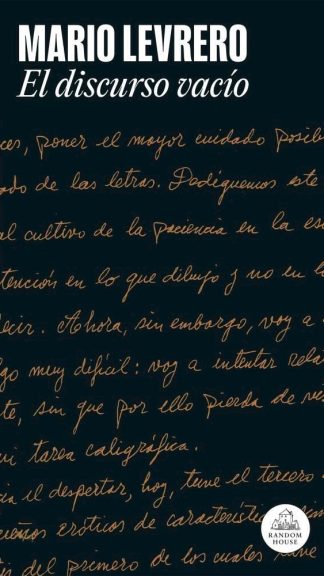 MARIO LEVRERO
El discurso vacío
ces, poner el mayor cuidado posib
ado de las letras. Dediquemos este
al cultivo de la paciencia en la es
tención en lo que dibujo y no en lo
decir. Ahora, sin embargo, voy a
go muy difícil: voy a intentar rela
te, sin que por ello pierda de
mi tarea caligráfica.
el despertar, hoy, tuve el tercero
sueños eróticos de característi
del primero de los cuales
RANDOM
HOUSE